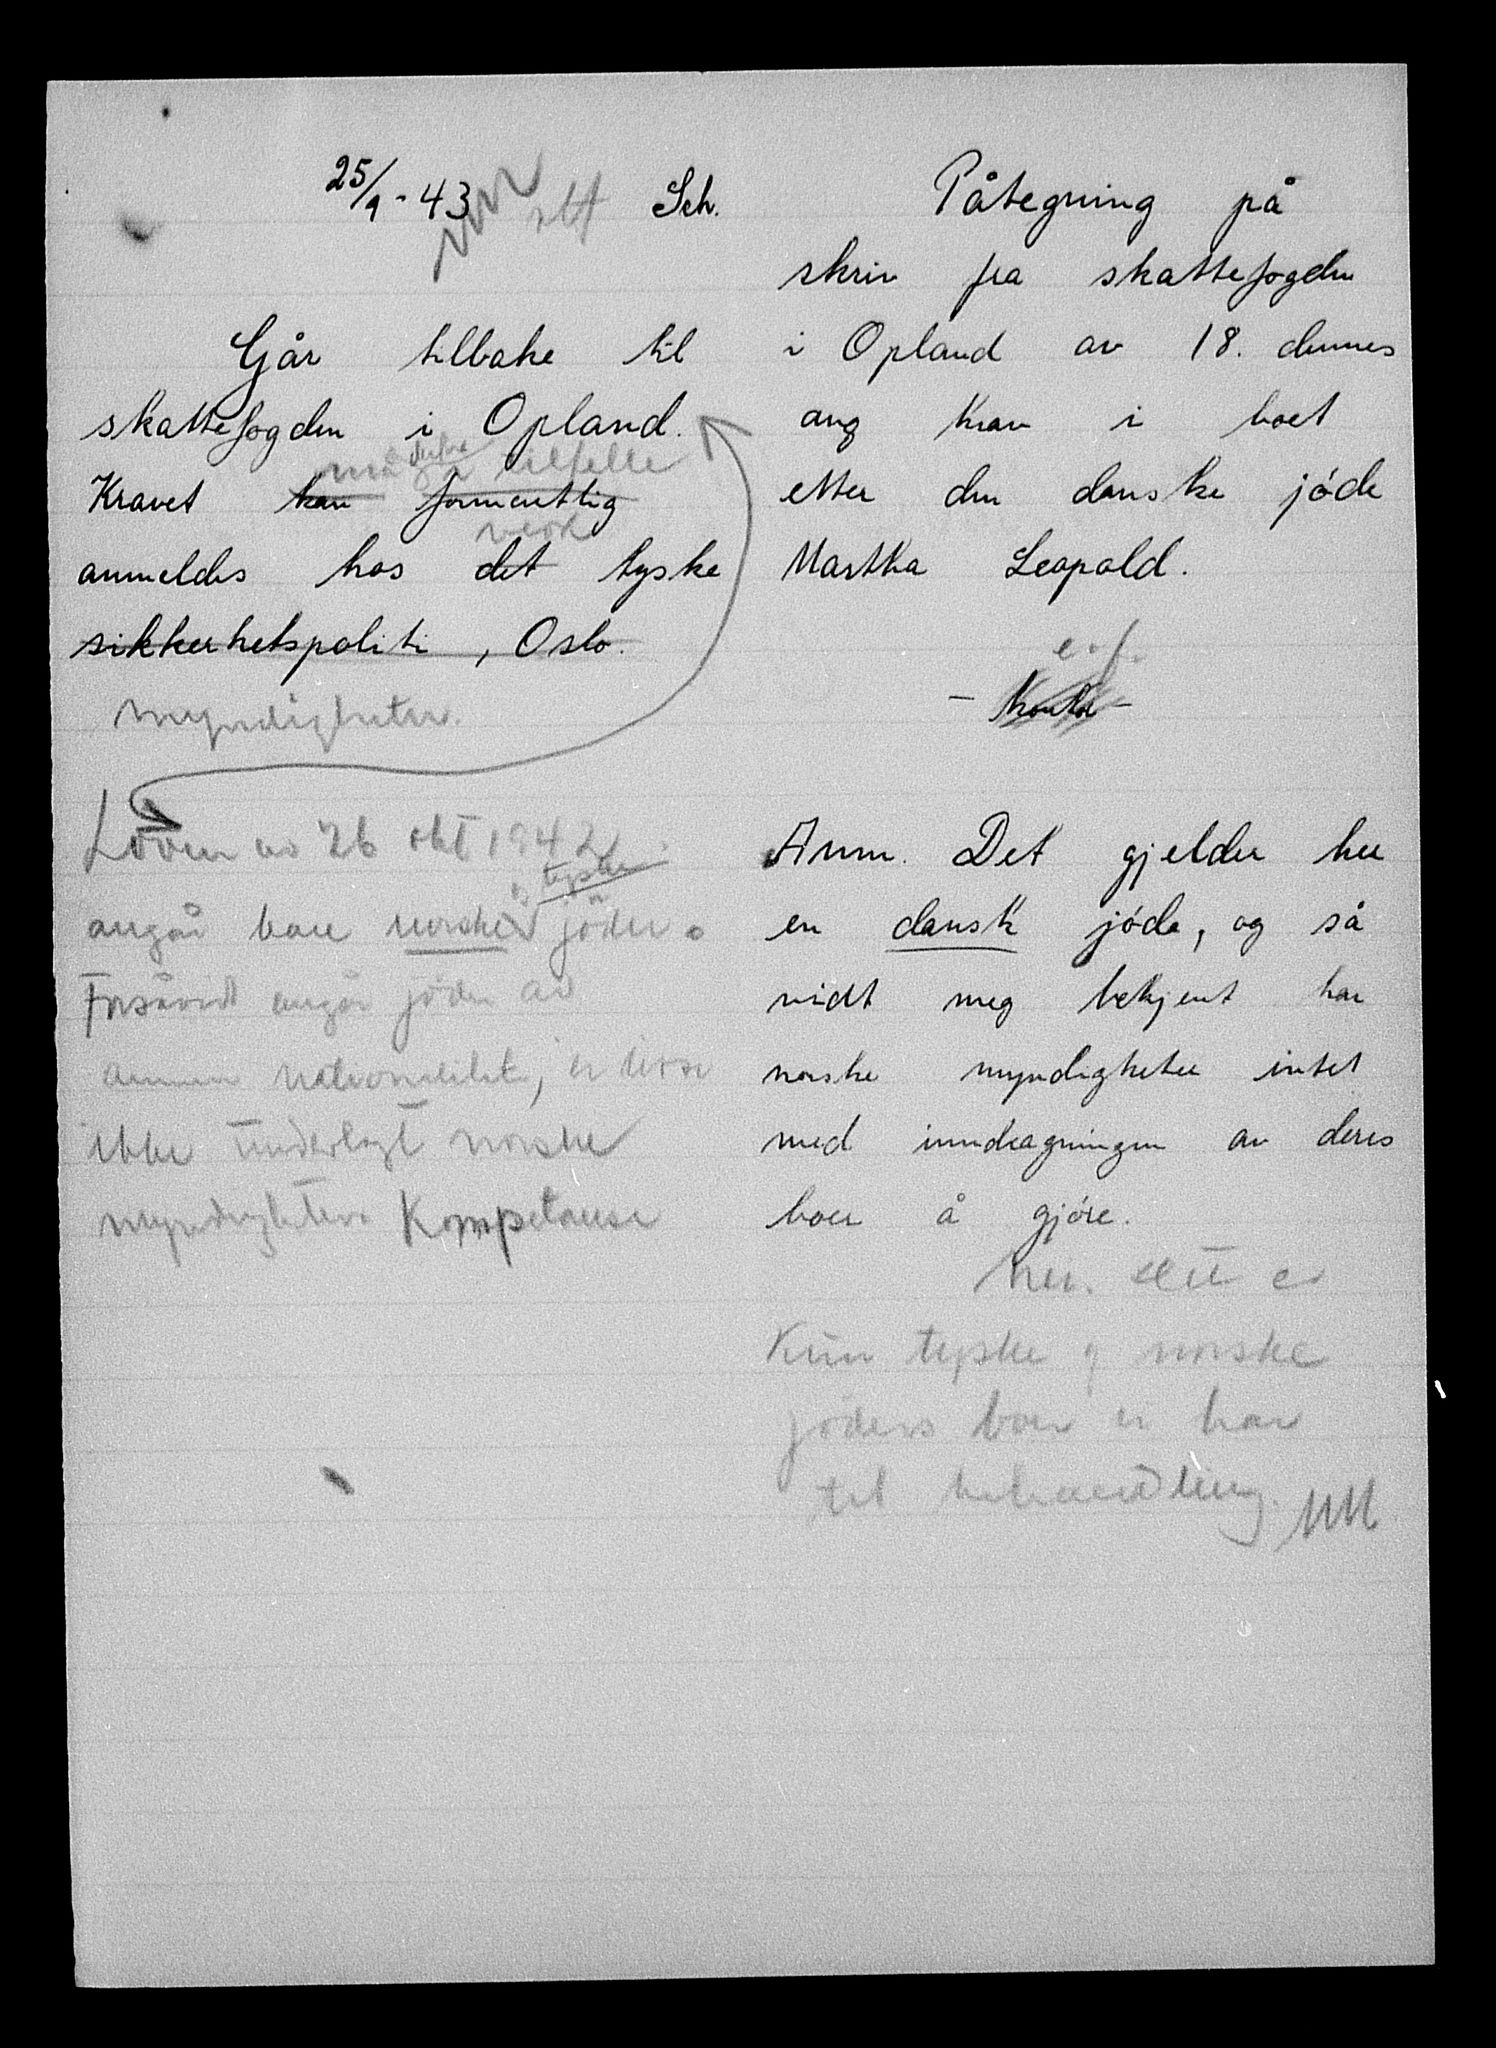 25/9 - 43 Sch.
Går tilbake til
skattefogden i Opland.
må derfor i tilfelle
Kravet kan formentlig
anmeldes hos det tyske
sikkerhetspoliti, Oslo.
myndigheter.
Loven av 26 okt 1942
og tyske
angår bare norske jöder.
Forsåvidt angår jöder av
annen nationalitet, er disse
ikke underlagt norske
myndigheters Kompetanse
Påtegning på
skriv fra skattefogden
i Opland av 18. dennes
ang krav i boet
etter den danske jóde
Martha Leopold.
e.f.
- Kontor -
Anm. Det gjelder her
en dansk jóde, og så
vidt meg bekjent har
norske myndigheter intet
med inndragningen av deres
boer å gjóre.
er
Kun tyske og norske
jöders boer vi har
til behandling.